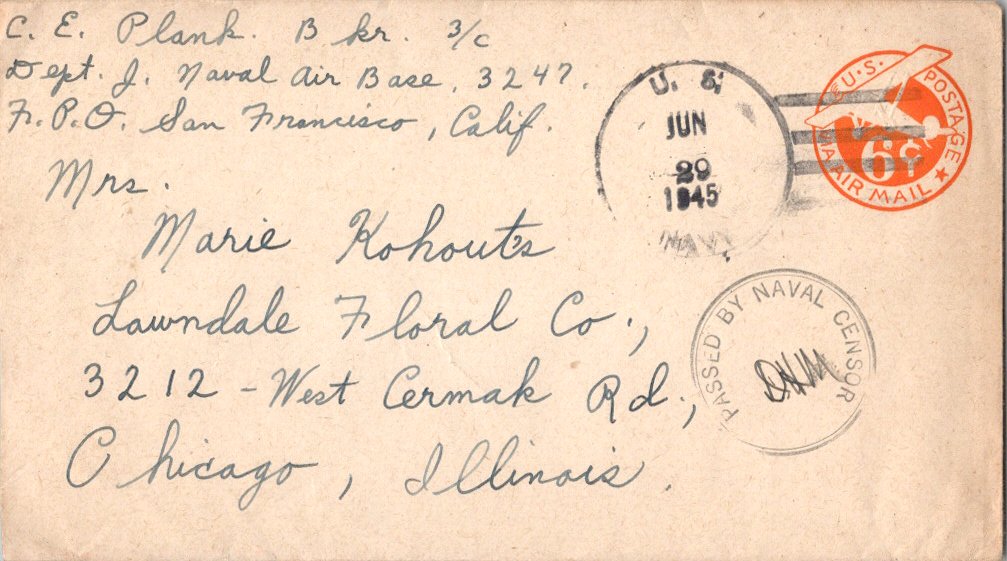 C. E. Plank. B kr. 3/c
Dept. J. Naval Air Base, 3247.
F.P.O. San Francisco, Calif.
U. S.
JUN
29
1945
NAVY
U.S. POSTAGE
6¢
VIA AIR MAIL
Mrs.
Marie Kohout's
Lawndale Floral Co.,
3212 - West Cermak Rd.,
Chicago, Illinois.
PASSED BY NAVAL CENSOR